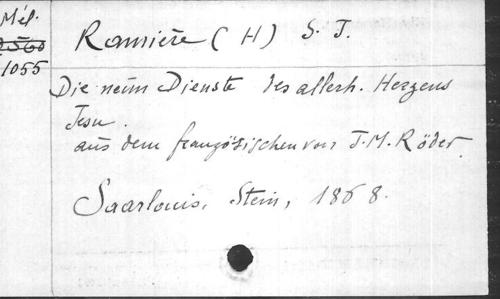 Mél.
2560
1055
Ramière (H) S. J.
Die neun Dienste des allerh. Herzens
Jesu.
aus dem französischen von J. M. Röder.
Saarlouis, Stein, 1868.